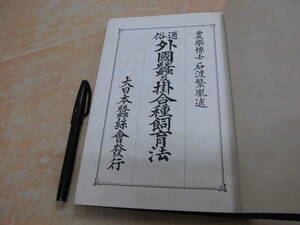 農學博士石渡繁胤述
通俗
外國蠶及掛合種飼育法
大日本蠶絲會發行